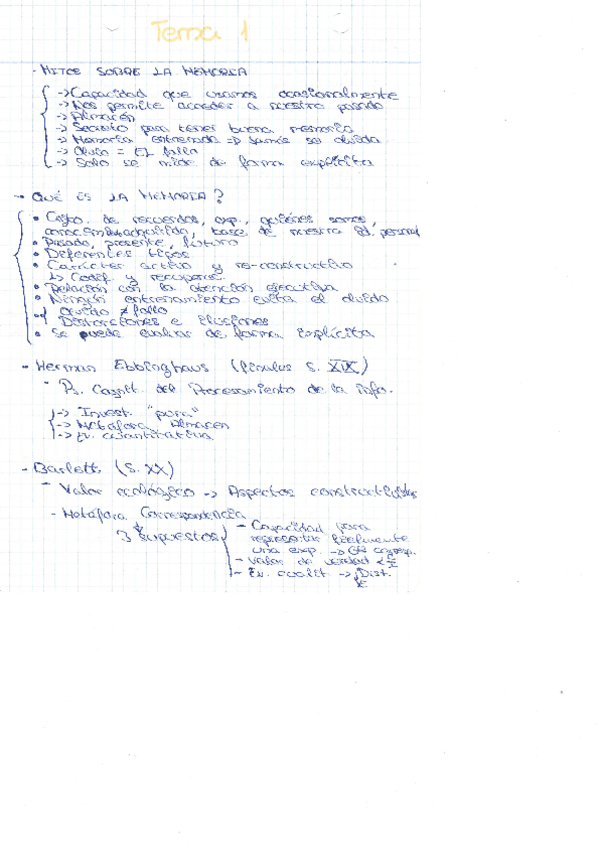 Tema 1
- MITOS SOBRE LA MEMORIA
-> Capacidad que usamos ocasionalmente
-> Nos permite acceder a nuestro pasado
-> Almacén
-> Secreto para tener buena memoria
-> Memoria entrenada => jamás se olvida
-> Olvido = El fallo
-> Solo se mide de forma explícita
- QUÉ ES LA MEMORIA?
• Cjto. de recuerdos, exp., quiénes somos,
base de nuestra id. personal
• Pasado, presente, futuro
• Diferentes tipos
• Carácter activo y re-constructivo
↳ Codif. y recuperar
• Relación con la atención ejecutiva
• Ningún entrenamiento evita el olvido
• Olvido ≠ fallo
• Distorsiones e ilusiones
• Se puede evaluar de forma implícita
- Herman Ebbinghaus (finales S. XIX)
- Ps. Cognit. del Procesamiento de la Info.
-> Invest. "pura"
-> Metáfora Almacén
-> Ev. cuantitativa
- Barlett (S. XX)
- Valor ecológico -> Aspectos constructivos
- Metáfora Correspondencia
3 supuestos
- Capacidad para
representar fielmente
una exp. -> corresp.
- Valor de verdad < V F
- Ev. cualit -> Dist.